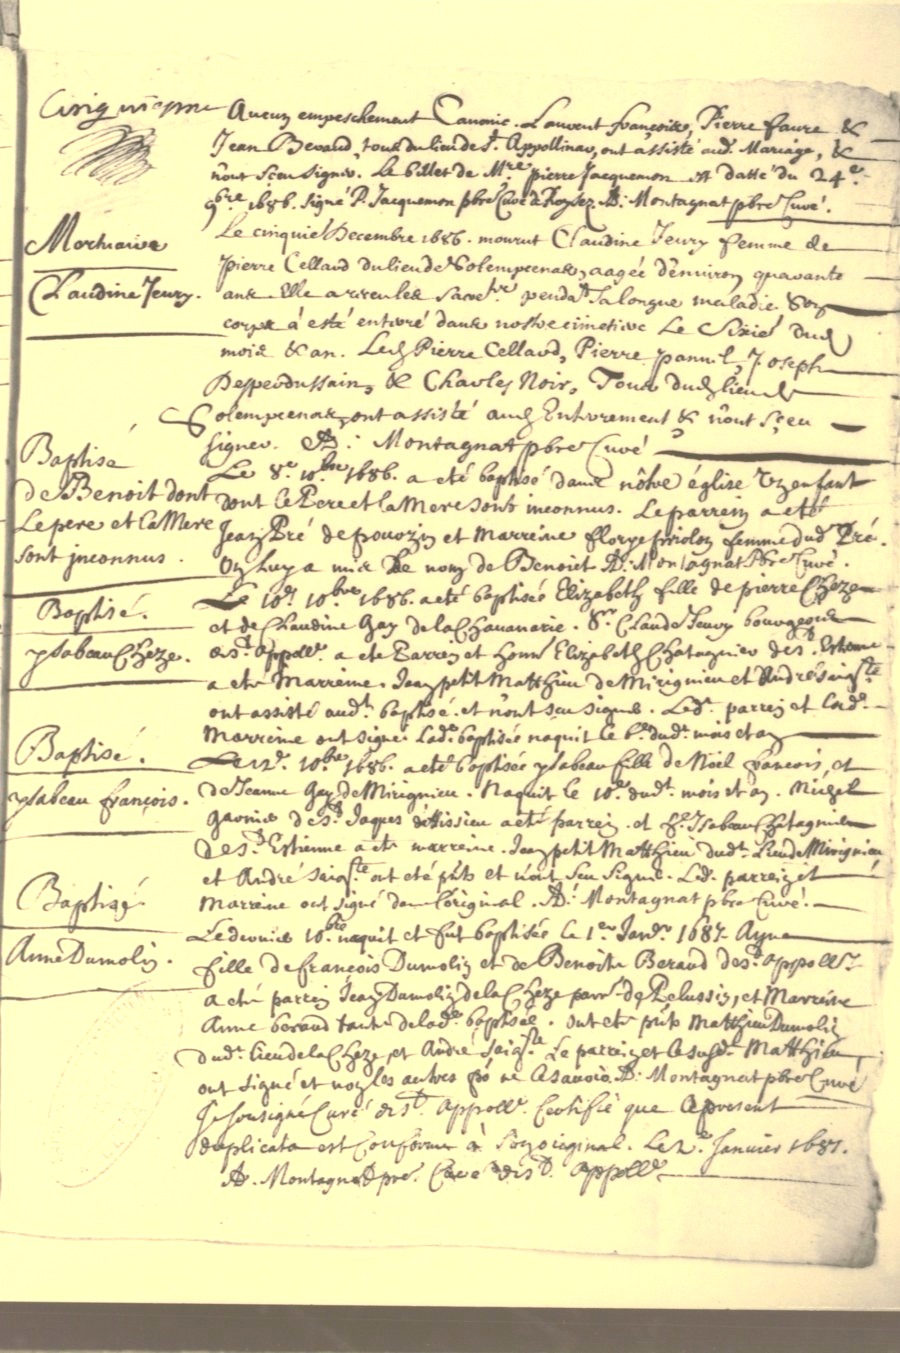 Cinquiesme
Aucun empeschement Canonic. Laurent françois, Pierre faure &
Jean Beraud, tous du lieu de St. Appollinar, ont assisté aud. Mariage, &
n'ont sceu signer. Le billet de Mre. pierre Jacquemon est datté du 24e.
9bre. 1686. signé P. Jacquemon pbre Curé de Roysez. A: Montagnat pbre Curé.
Mortuaire
Claudine Jeury.
Le cinquié Decembre 1686. mourut Claudine Jeury femme de
pierre Cellard du lieu de Solempcenas, aagée d'environ quarante
ans. Elle a receu les sacre. penda sa longue maladie. Son
corps à esté enterré dans nostre cimetiere le sixié dud
mois & an. Led Pierre Cellard, Pierre pannil, Joseph
Desperdussain, & Charles Noir, Tous dud lieu de
Solempcenas, ont assisté aud Enterrement & n'ont sçeu
signer. A: Montagnat pbre Curé
Baptisé
de Benoit dont
Le pere et la Mere
sont jnconnus.
Le 8e. 10bre 1686. a eté baptisé dans nôtre église Un enfant
dont Le Pere et la Mere sont inconnus. Le parrein a eté
Jean Pré de pouvozin et Marreine florye priolon femme dud Pré.
On luy a mis le nom de Benoist A: Montagnat Pbre Curé.
Baptisé.
ysabeau Cheze.
Le 10e. 10bre 1686. a eté baptisée Elizabeth fille de pierre Cheze
et de Claudine Gay de la Chavanarie. Sr. Claude Jeury bourgeois
de St. Appollr. a eté Parrein et honn Elizabeth Chatagnier de St. Estienne
a eté Marreine. Jean petit Matthieu de Mirignieu et André saigte
ont assisté audt. baptisé. et n'ont sçu signer. Ledt. parrein et lad.
Marreine ont signé. Lade. baptisée naquit le 6e. dudt. mois et an
Baptisé.
ysabeau françois.
Le 12e. 10bre 1686. a eté baptisée ysabeau fille de Noël françois, et
de Jeanne Gay de Mirignieu. Naquit le 10e. dudt. mois et an. Michel
Garnier de St. Jaques d'Attissieu a eté parrein. et he. Isabeau Chatagnier
de St. Estienne a eté marreine. Jean petit Matthieu dudt. Lieu de Mirignieu
et André saigte. ont eté pnts et n'ont seu signer. Led. parrein et
Marreine ont signé dans l'original. A: Montagnat pbre Curé.
Baptisé
Anne Dumolin.
Le dernier 10bre naquit et fut baptisée le 1er Janvr. 1687. Anne
fille de françois Dumolin et de Benoiste Beraud de St. appollr.
a eté parrein Jean Dumolin de la Cheze parr. de Pelussin, et Marreine
Anne beraud tante de lade. baptisée. ont eté pnts Matthieu Dumolin
dudt. lieu de la Cheze, et André saigte. Le parrein et le susdt. Matthieu,
ont signé et non les autres po. ne le savoir. A: Montagnat pbre Curé
Je sousigné Curé de St. Appollr. Certifié que le present
duplicata est Conforme à son original. Le 2e. Janvier 1687.
A. Montagnat pre. Curé de St. Appollr.